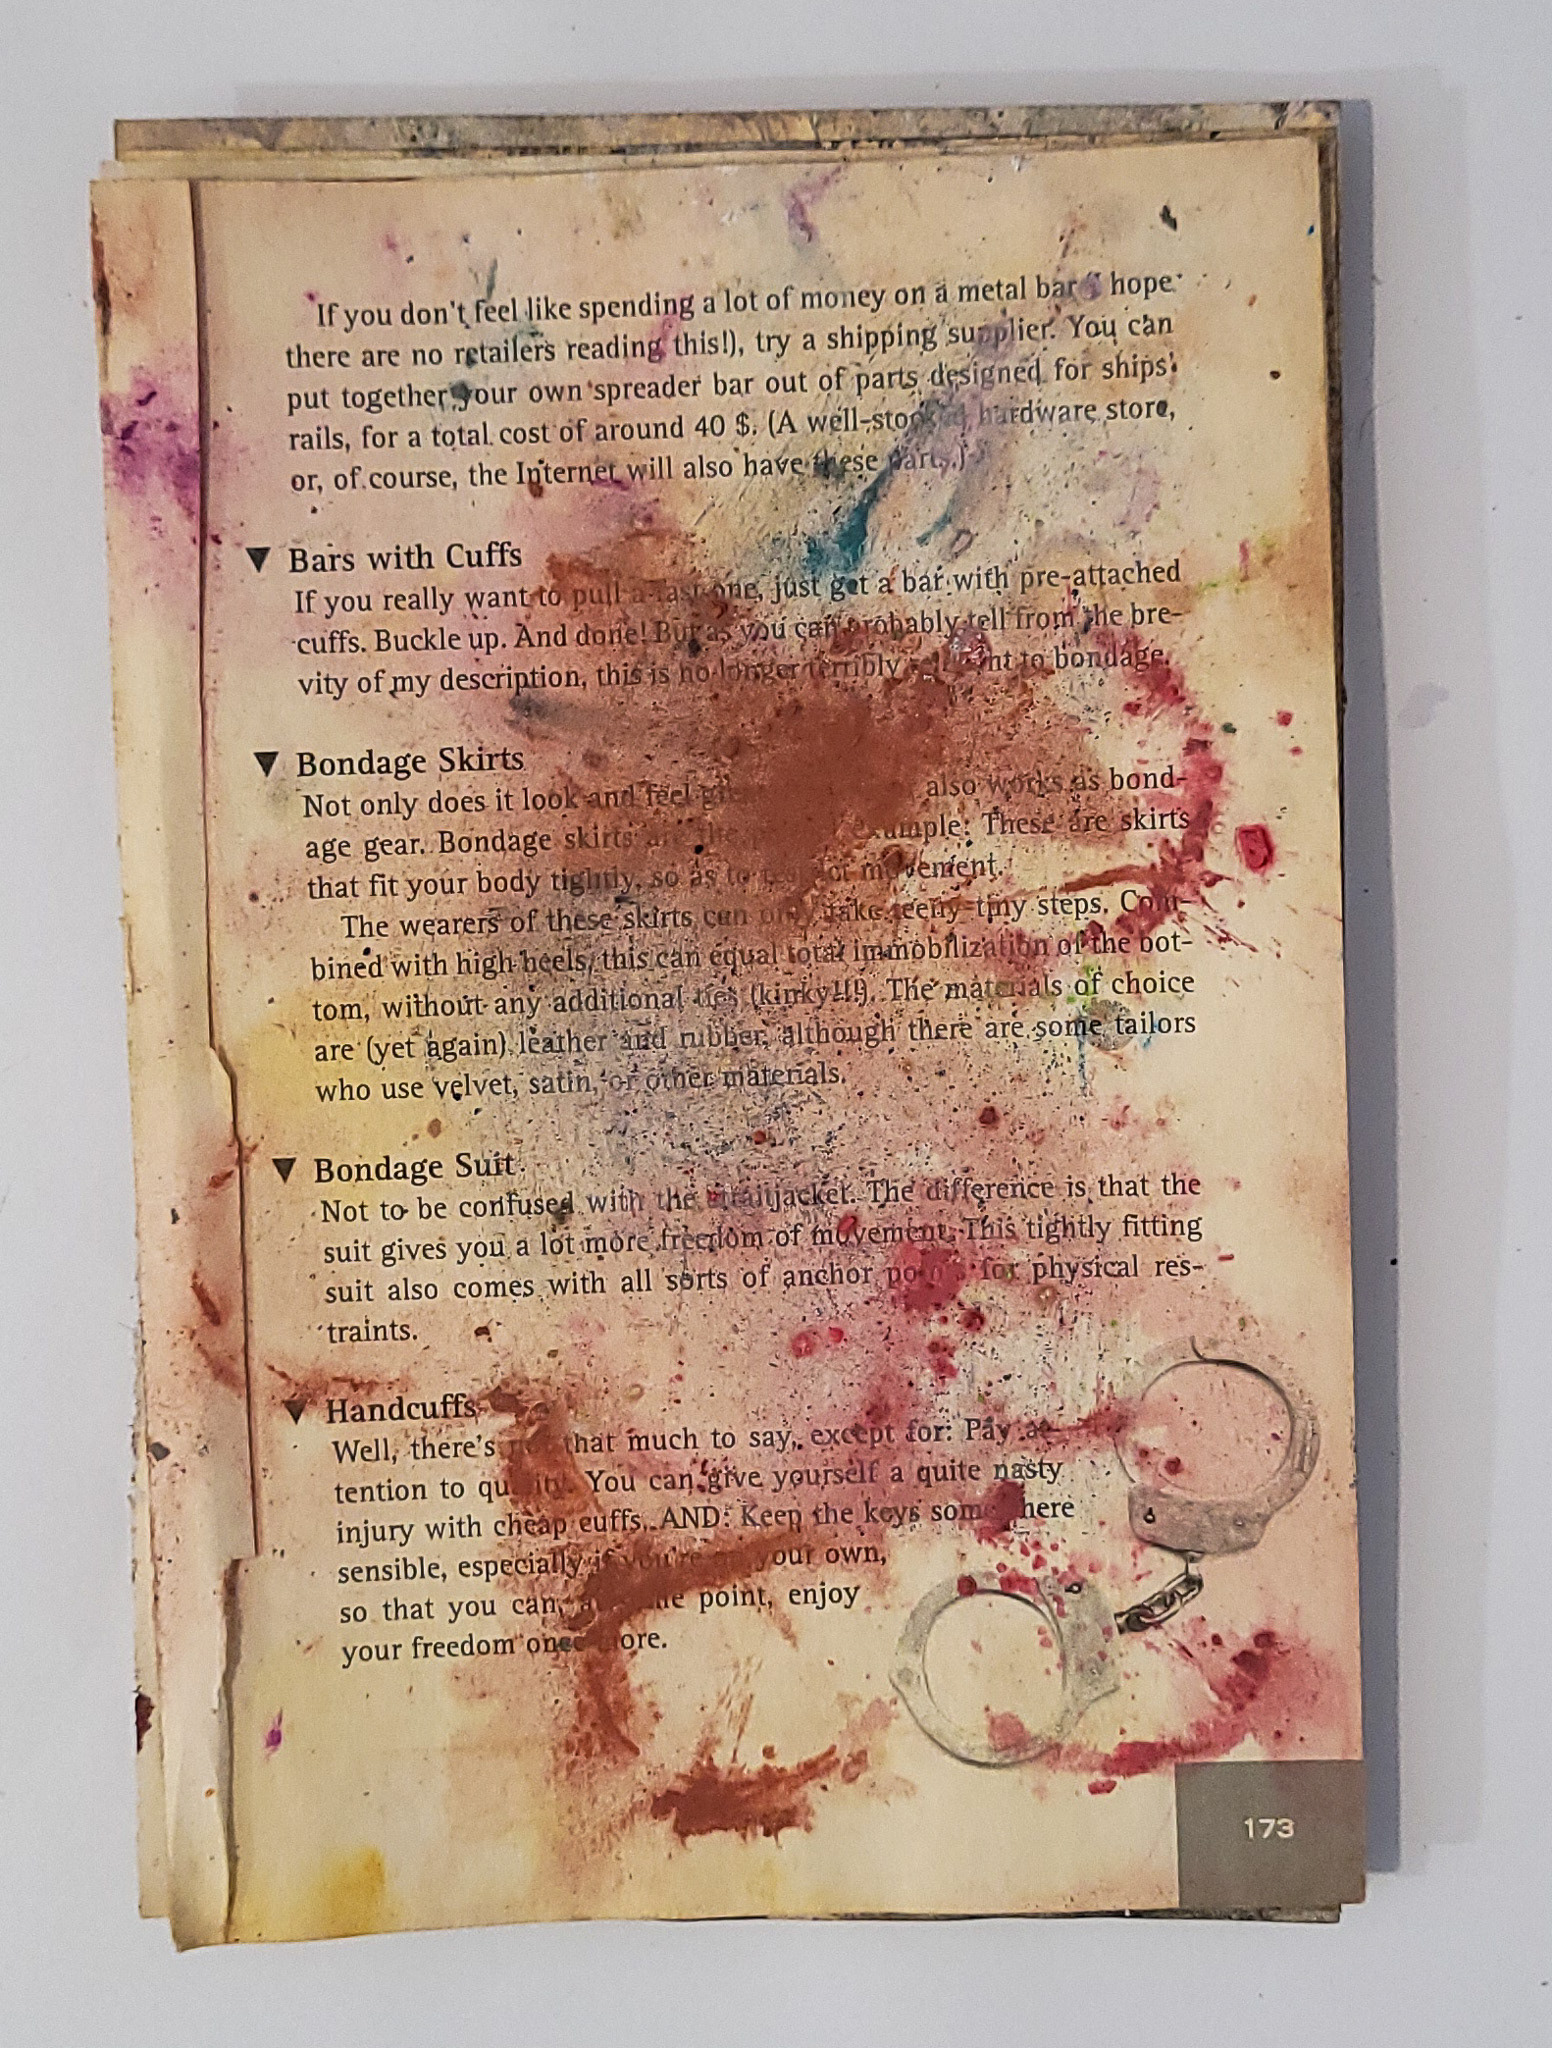 If you don't feel like spending a lot of money on a metal bar hope
there are no retailers reading this!), try a shipping supplier. You can
put together your own spreader bar out of parts designed for ships'
rails, for a total cost of around 40 $. (A well-stocked hardware store,
or, of course, the Internet will also have these parts.)
▼ Bars with Cuffs
If you really want to pull a fast one, just get a bar with pre-attached
cuffs. Buckle up. And done! But as you can probably tell from the bre-
vity of my description, this is no longer terribly to bondage.
▼ Bondage Skirts
Not only does it look and feel also works as bond-
age gear. Bondage skirts are the example: These are skirts
that fit your body tightly, so as to restrict movement.
The wearers of these skirts can only take teeny-tiny steps. Com-
bined with high heels, this can equal total immobilization of the bot-
tom, without any additional ties (kinky!!!). The materials of choice
are (yet again) leather and rubber, although there are some tailors
who use velvet, satin, or other materials.
▼ Bondage Suit
Not to be confused with the straitjacket. The difference is that the
suit gives you a lot more freedom of movement. This tightly fitting
suit also comes with all sorts of anchor points for physical res-
traints.
▼ Handcuffs
Well, there's not that much to say, except for: Pay at-
tention to quality. You can give yourself a quite nasty
injury with cheap cuffs. AND: Keep the keys somewhere
sensible, especially if you're on your own,
so that you can, point, enjoy
your freedom once more.
173